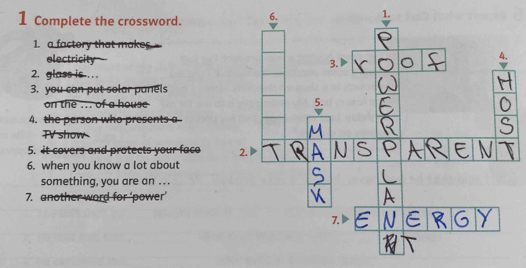 1 Complete the crossword.
1. a factory that makes
electricity
2. glass is ...
3. you can put solar panels
on the ... of a house
4. the person who presents a
TV show
5. it covers and protects your face
6. when you know a lot about
something, you are an ...
7. another word for 'power'
6.
1. POWERPLANT
3. roof
4. HOST
5. MASK
2. TRANSPARENT
7. ENERGY